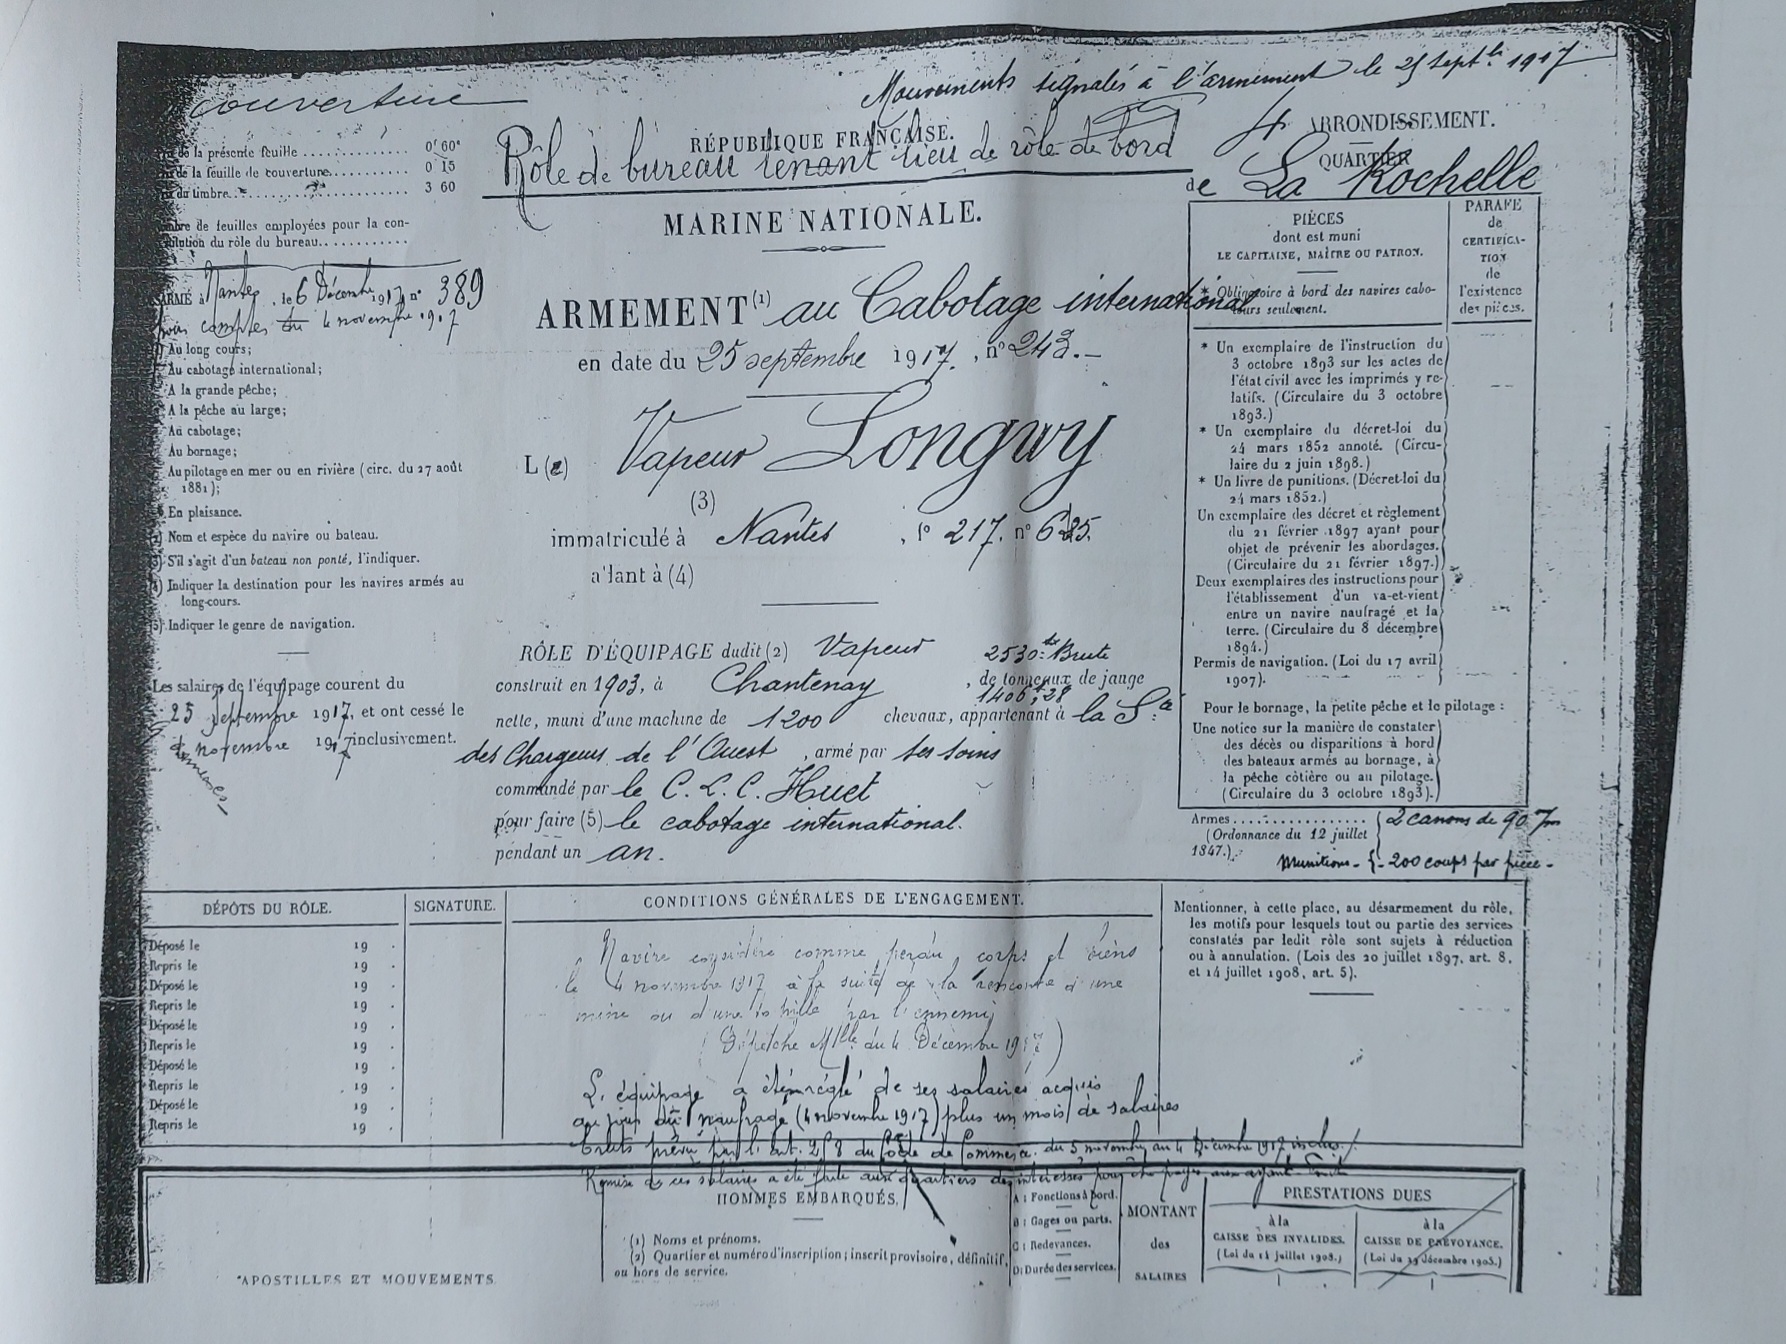 couverture
Mouvements signalés à l'armement le 25 septbre 1917
RÉPUBLIQUE FRANÇAISE.
Rôle de bureau tenant lieu de rôle de bord
4 ARRONDISSEMENT.
QUARTIER
de La Rochelle
de la présente feuille ............ 0f 60c
de la feuille de couverture.......... 0 15
du timbre.......... 3 60
de feuilles employées pour la con-
du rôle du bureau............
MARINE NATIONALE.
ARMÉ à Nantes, le 6 Décembre 1917 n° 389
pour compter du 4 novembre 1917
ARMEMENT (1) au Cabotage international
en date du 25 septembre 1917, n° 243.-
L (2) Vapeur Longwy
(3)
immatriculé à Nantes, f° 217. n° 685.
allant à (4)
Au long cours;
Au cabotage international;
A la grande pêche;
A la pêche au large;
Au cabotage;
Au bornage;
Au pilotage en mer ou en rivière (circ. du 27 août
1881);
En plaisance.
Nom et espèce du navire ou bateau.
(3) S'il s'agit d'un bateau non ponté, l'indiquer.
Indiquer la destination pour les navires armés au
long-cours.
(5) Indiquer le genre de navigation.
Les salaires de l'équipage courent du
25 septembre 1917, et ont cessé le
4 novembre 1917 inclusivement.
RÔLE D'ÉQUIPAGE dudit (2) Vapeur 2530tx Brute
construit en 1903, à Chantenay, de tonneaux de jauge
1406,28
nette, muni d'une machine de 1200 chevaux, appartenant à la Sté
des Chargeurs de l'Ouest, armé par ses soins
commandé par le C. L. C. Huet
pour faire (5) le cabotage international.
pendant un an.
PIÈCES
dont est muni
LE CAPITAINE, MAÎTRE OU PATRON.
* Obligatoire à bord des navires cabo-
teurs seulement.
PARAFE
de
CERTIFICA-
TION
de
l'existence
des pièces.
* Un exemplaire de l'instruction du
3 octobre 1893 sur les actes de
l'état civil avec les imprimés y re-
latifs. (Circulaire du 3 octobre
1893.)
* Un exemplaire du décret-loi du
24 mars 1852 annoté. (Circu-
laire du 2 juin 1898.)
* Un livre de punitions. (Décret-loi du
24 mars 1852.)
Un exemplaire des décret et règlement
du 21 février 1897 ayant pour
objet de prévenir les abordages.
(Circulaire du 21 février 1897.)
Deux exemplaires des instructions pour
l'établissement d'un va-et-vient
entre un navire naufragé et la
terre. (Circulaire du 8 décembre
1894.)
Permis de navigation. (Loi du 17 avril
1907).
Pour le bornage, la petite pêche et le pilotage :
Une notice sur la manière de constater
des décès ou disparitions à bord
des bateaux armés au bornage, à
la pêche côtière ou au pilotage.
(Circulaire du 3 octobre 1893).
Armes................ 2 canons de 90 m/m
(Ordonnance du 12 juillet
1847.)
Munitions - 200 coups par pièce -
DÉPÔTS DU RÔLE.
SIGNATURE.
CONDITIONS GÉNÉRALES DE L'ENGAGEMENT.
Déposé le 19 .
Repris le 19 .
Déposé le 19 .
Repris le 19 .
Déposé le 19 .
Repris le 19 .
Déposé le 19 .
Repris le 19 .
Déposé le 19 .
Repris le 19 .
Navire considéré comme perdu, corps et biens
le 4 novembre 1917 à la suite de la rencontre d'une
mine ou d'une torpille par l'ennemi
(Dépêche Mlle du 4 Décembre 1917)
L'équipage a été réglé de ses salaires acquis
au jour du naufrage (4 novembre 1917) plus un mois de salaires
bruts prévu par l'art. 258 du Code de Commerce. du 5 novembre au 4 Décembre 1917 inclus./
Remise de ces salaires a été faite aux quartiers des intéressés pour être payés aux ayants droit
Mentionner, à cette place, au désarmement du rôle,
les motifs pour lesquels tout ou partie des services
constatés par ledit rôle sont sujets à réduction
ou à annulation. (Lois des 20 juillet 1897, art. 8,
et 14 juillet 1908, art. 5).
*APOSTILLES ET MOUVEMENTS
HOMMES EMBARQUÉS.
(1) Noms et prénoms.
(2) Quartier et numéro d'inscription; inscrit provisoire, définitif,
ou hors de service.
A : Fonctions à bord.
B : Gages ou parts.
C : Redevances.
D : Durée des services.
MONTANT
des
SALAIRES
PRESTATIONS DUES
à la
CAISSE DES INVALIDES.
(Loi du 14 juillet 1908.)
à la
CAISSE DE PRÉVOYANCE.
(Loi du 29 décembre 1905.)